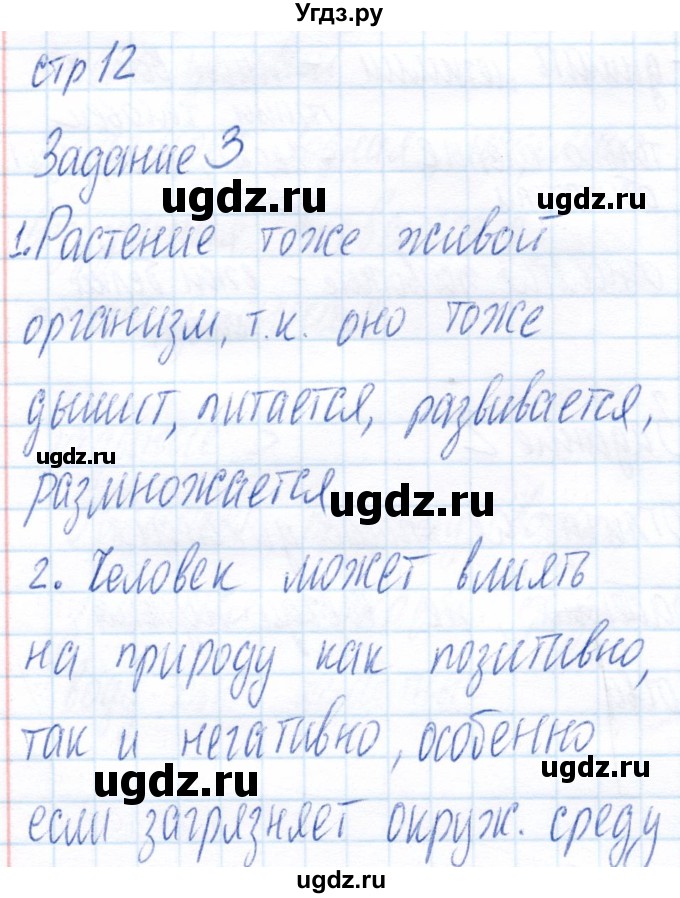 Угдз.ру
стр 12
Задание 3
ugdz.ru
ugdz.ru
1. Растение тоже живой
организм, т.к. оно тоже
дышит, питается, развивается,
ugdz.ru
размножается
ugdz.ru
2. Человек может влиять
на природу как позитивно,
так и негативно, особенно
ugdz.ru
ugdz.ru
если загрязняет окруж. среду
ugdz.ru